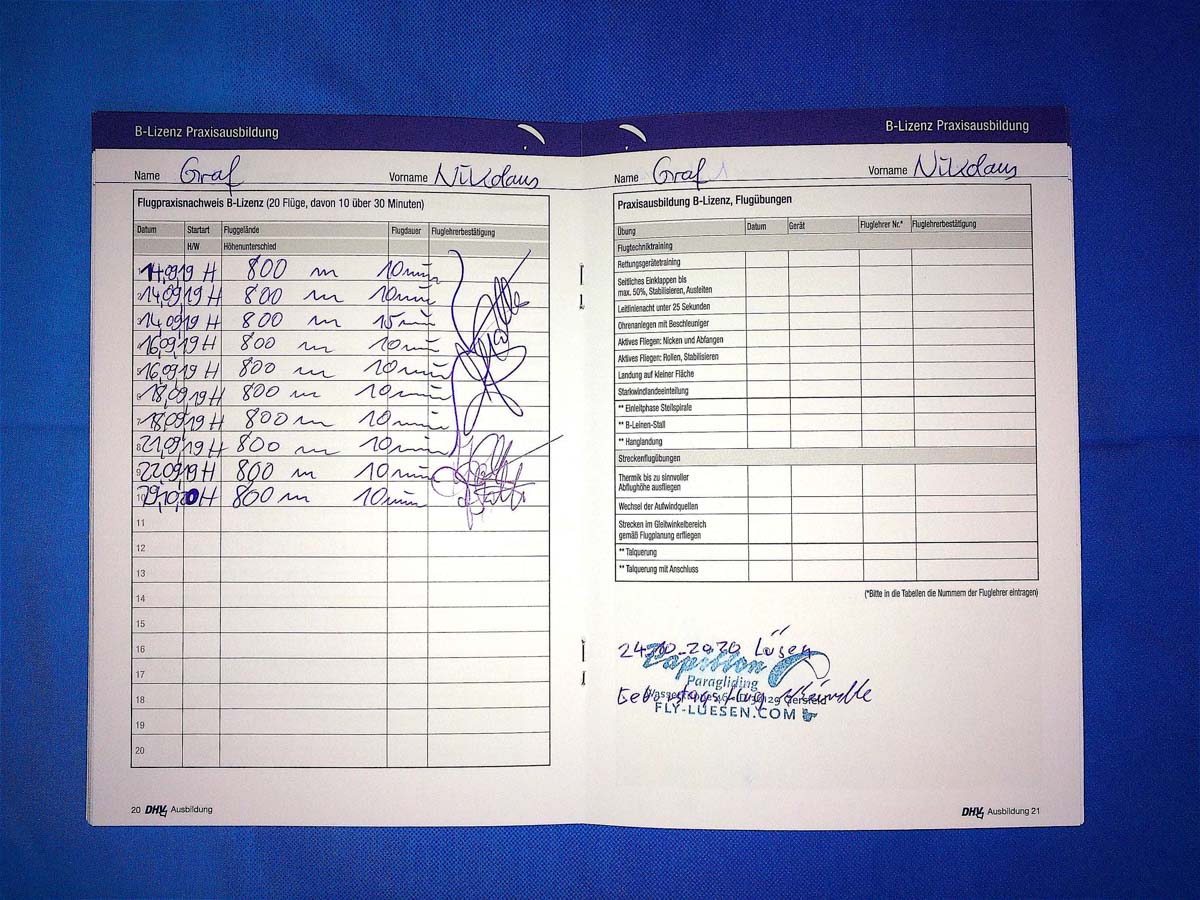 B-Lizenz Praxisausbildung
Name Graf Vorname Nikolaus
Flugpraxisnachweis B-Lizenz (20 Flüge, davon 10 über 30 Minuten)
Datum Startart Fluggelände Flugdauer Fluglehrerbestätigung
H/W Höhenunterschied
1 14,09,19 H 800 m 10 min
2 14,09,19 H 800 m 10 min
3 14,09,19 H 800 m 15 min
4 16,09,19 H 800 m 10 min
5 16,09,19 H 800 m 10 min
6 18,09,19 H 800 m 10 min
7 18,09,19 H 800 m 10 min
8 21,09,19 H 800 m 10 min
9 22,09,19 H 800 m 10 min
10 29,10,20 H 800 m 10 min
11
12
13
14
15
16
17
18
19
20
20 DHV Ausbildung
B-Lizenz Praxisausbildung
Name Graf Vorname Nikolaus
Praxisausbildung B-Lizenz, Flugübungen
Übung Datum Gerät Fluglehrer Nr.* Fluglehrerbestätigung
Flugtechniktraining
Rettungsgerätetraining
Seitliches Einklappen bis
max. 50%, Stabilisieren, Ausleiten
Leitlinienacht unter 25 Sekunden
Ohrenanlegen mit Beschleuniger
Aktives Fliegen: Nicken und Abfangen
Aktives Fliegen: Rollen, Stabilisieren
Landung auf kleiner Fläche
Starkwindlandeeinteilung
** Einleitphase Steilspirale
** B-Leinen-Stall
** Hanglandung
Streckenflugübungen
Thermik bis zu sinnvoller
Abflughöhe ausfliegen
Wechsel der Aufwindquellen
Strecken im Gleitwinkelbereich
gemäß Flugplanung erfliegen
** Talquerung
** Talquerung mit Anschluss
(*Bitte in die Tabellen die Nummern der Fluglehrer eintragen)
24.10.2020 Lüsen
Papillon
Paragliding
Gersfeld
FLY-LUESEN.COM
DHV Ausbildung 21